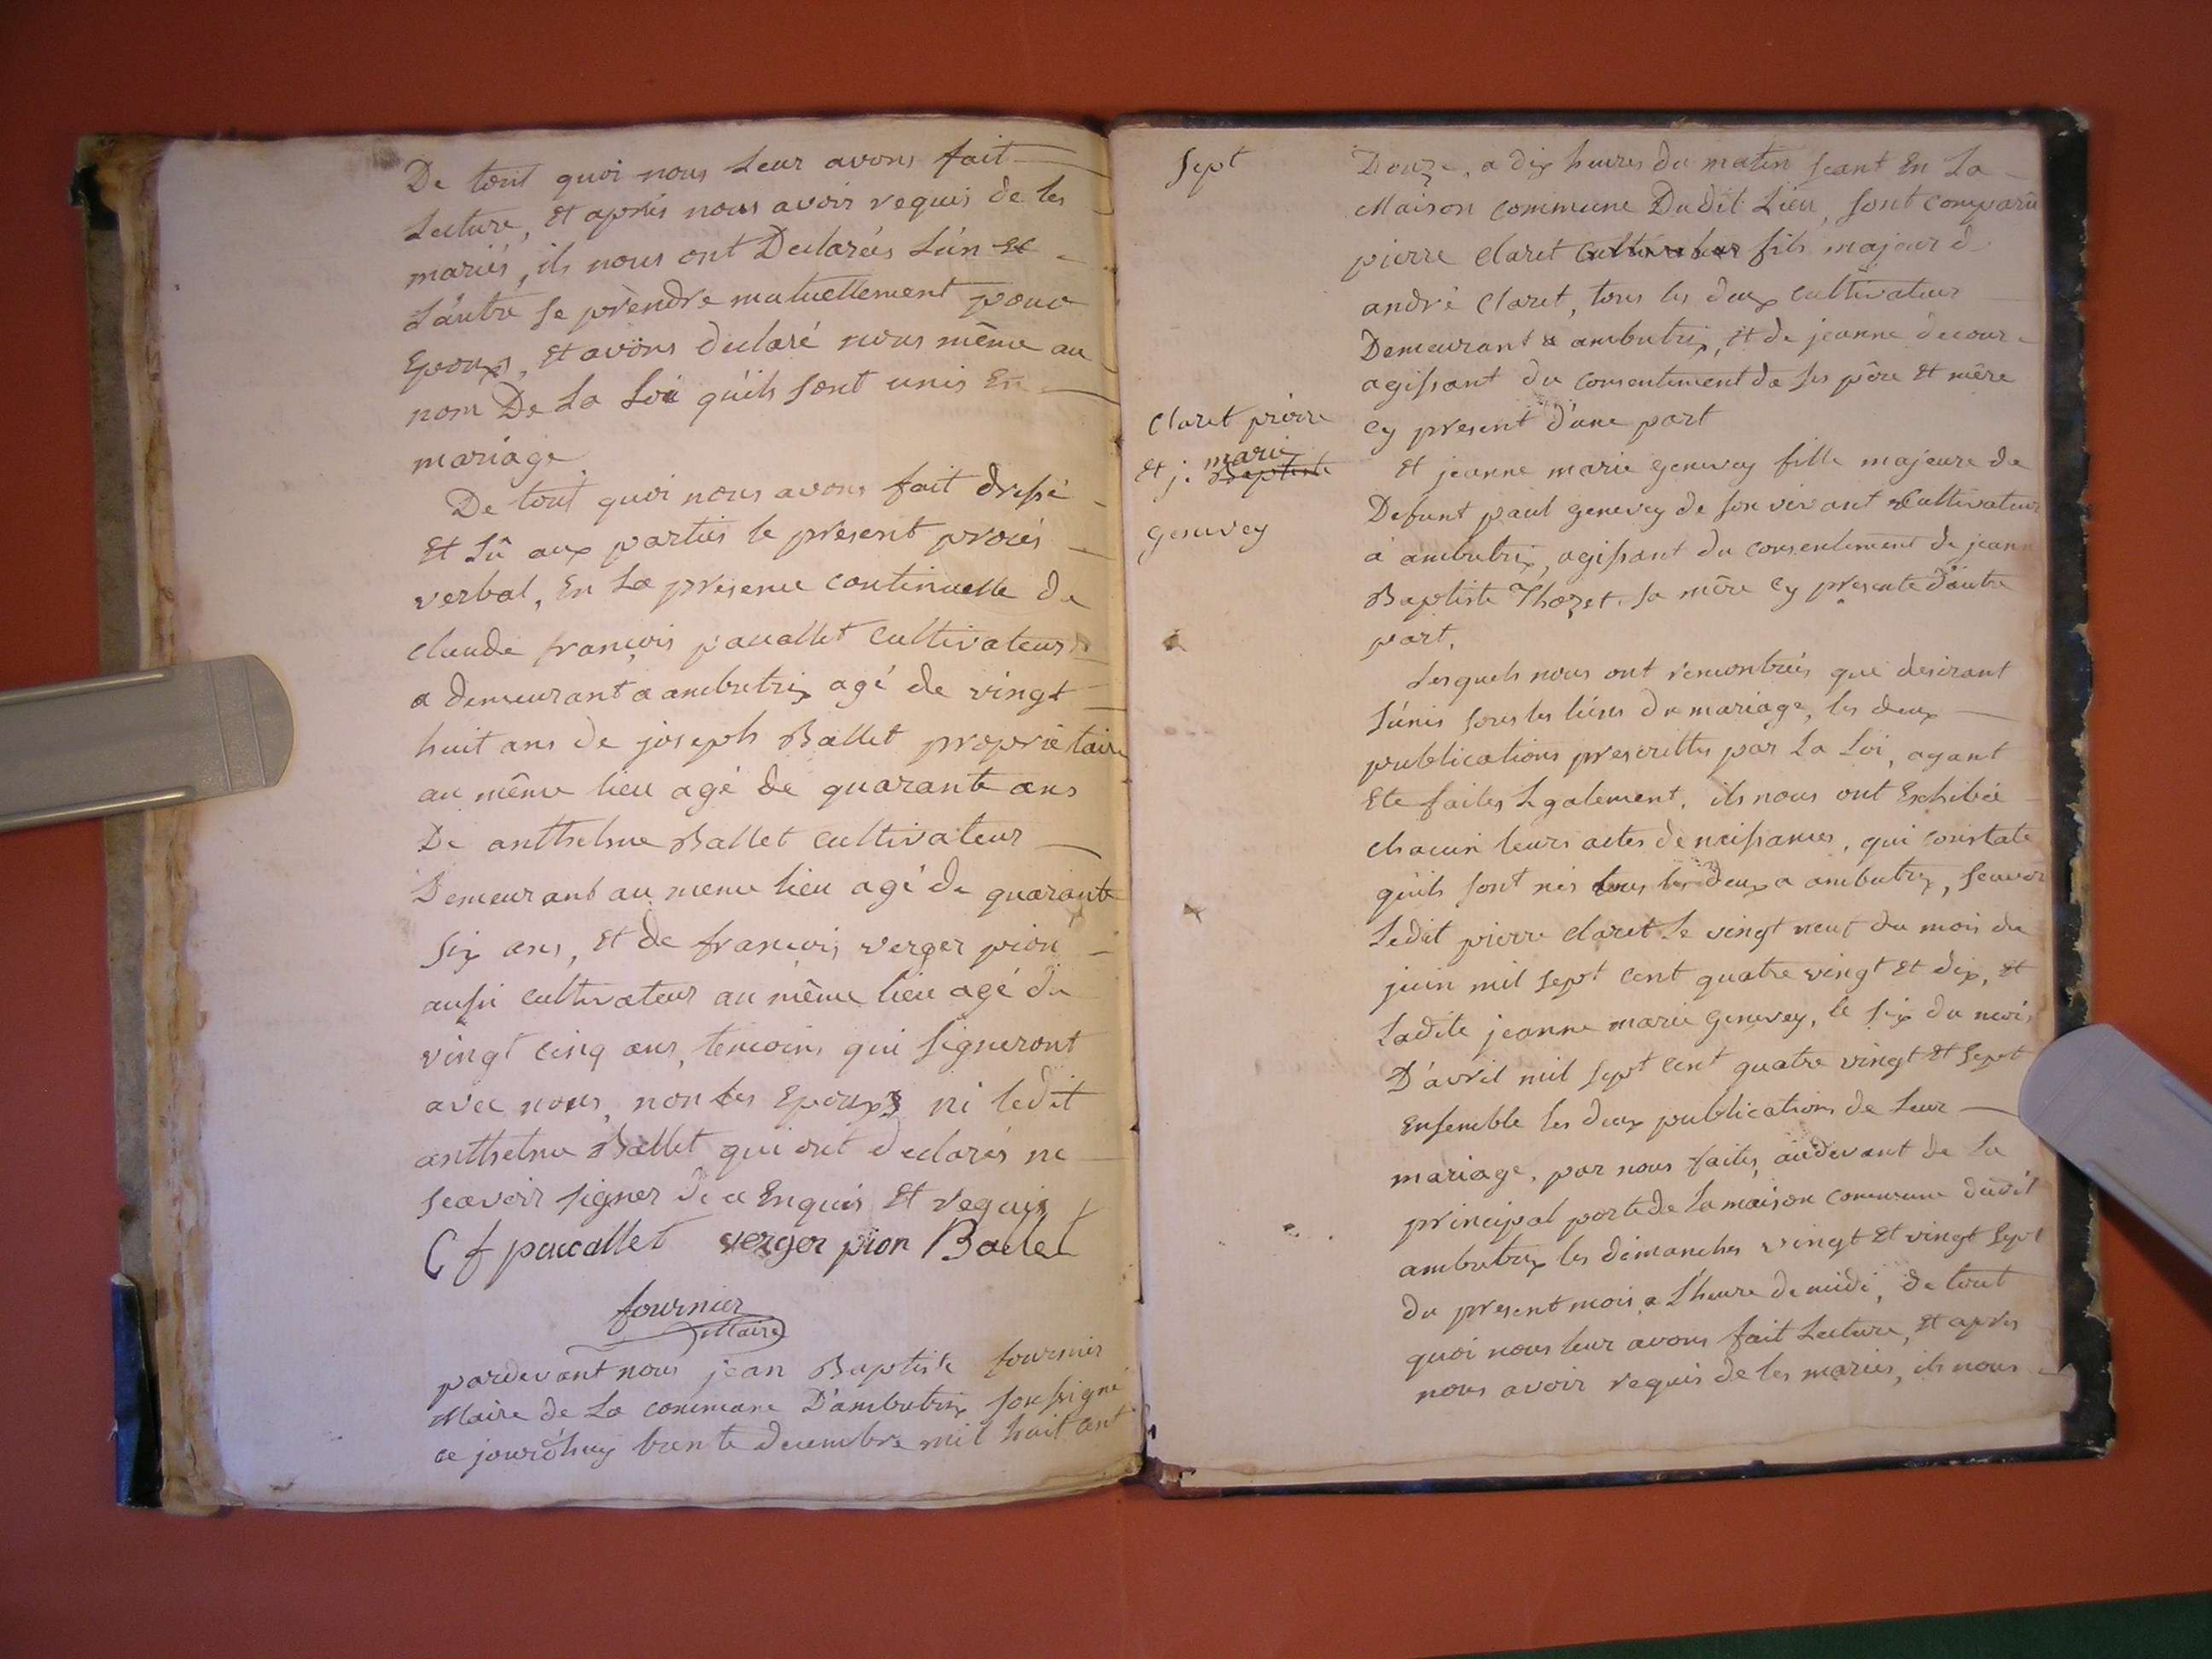 De tout quoi nous Leur avons fait
Lecture, Et aprés nous avoir requis de les
mariés, ils nous ont Declarées L'ún Et
L'áutre se prendre mutuellement pour
Epoux, Et avons declaré nous même au
nom De La Loi qúils sont unis En
mariage
De tout quoi nous avons fait dressé
Et Lû aux parties le present procés
verbal, En La presence continuelle de
claude françois pauallet cultivateur
a demeurant a ambutrix agé de vingt
huit ans de joseph Ballet proprietaire
au même lieu agé de quarante ans
De anthelme Ballet cultivateur
Demeurant au meme lieu agé de quarante
six ans, Et de françois verger pion
aussi cultivateur au même lieu agé de
vingt cinq ans, temoins qui signeront
avec nous, non les Epoux ni ledit
anthelme Ballet qui ont declarés ne
scavoir signer de ce Enquis Et requis
C f pauallet verger pion Ballet
fournier
Maire
pardevant nous jean Baptiste fournier
Maire de La commune D'ambutrix soussigné
ce jourdhuy trente decembre mil huit cent
Sept
Douze, a dix heures du matin seant En La
Maison commune Dudit Lieu, sont comparu
pierre Claret cultivateur fils majeur d
andré Claret, tous les deux cultivateur
Demeurant a ambutrix, Et de jeanne decour
agissant du consentement de ses pére Et mére
Cy present d'úne part
Claret pierre
Et j. Baptiste marie
genevey
Et jeanne marie genevey fille majeure de
Defunt paul genevey de son vivant Cultivateur
á ambutrix, agissant du consentement de jeann
Baptiste Thozet sa mére Cy presente d'áutre
part,
Lesquels nous ont remontrées que desirant
S'únir sous les liens du mariage, les deux
publications prescrittes par La Loi, ayant
Ete faites Legalement, ils nous ont Exhibée
chacun leurs actes de naissances, qui constate
qúils sont nés tous les deux a ambutrix, scavoir
Ledit pierre claret Le vingt neuf du mois de
juin mil sept cent quatre vingt Et dix, Et
Ladite jeanne marie genevey, le six du mois
D'avril mil sept cent quatre vingt Et Sept
Ensemble les deux publications de Leur
mariage, par nous faites, audevant de La
principal porte de La maison commune dudit
ambutrix les dimanches vingt Et vingt Sept
du present mois a L'heure de midi, de tout
quoi nous leur avons fait Lecture, Et apres
nous avoir requis de les mariés, ils nous